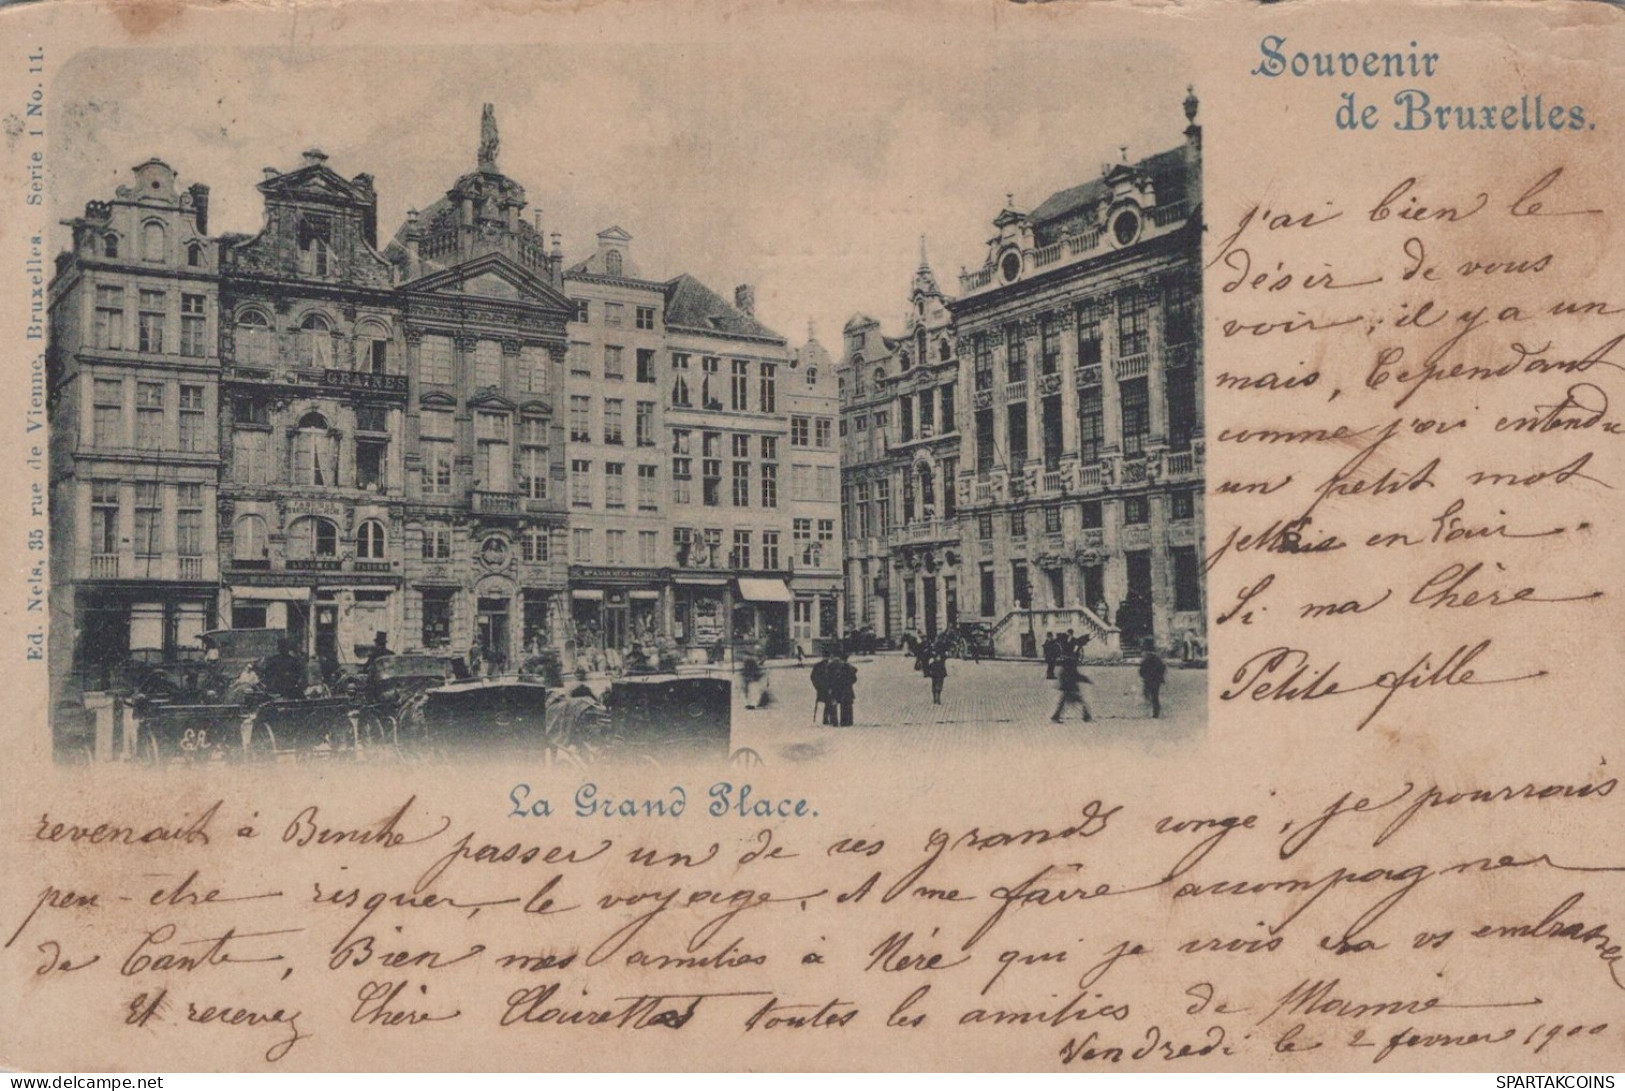 Souvenir
de Bruxelles.
Ed. Nels, 35 rue de Vienne, Bruxelles. Serie 1 No. 11.
GRAINES
EA
La Grand Place.
j'ai bien le
désir de vous
voir, il y a un
mais, Cependant
comme j'ai entendu
un petit mot
jetté en l'air.
Si ma Chère
Petite fille
revenait à Binche passer un de ces grands congé, je pourrais
peu-être risquer, le voyage, et me faire accompagner
de Tante, Bien mes amitiés à Méré qui je crois ira vs embrasser
Et recevez Chère Clairette toutes les amitiés de Mamie
Vendredi le 2 fevrier 1900
www.delcampe.net
SPARTAKCOINS